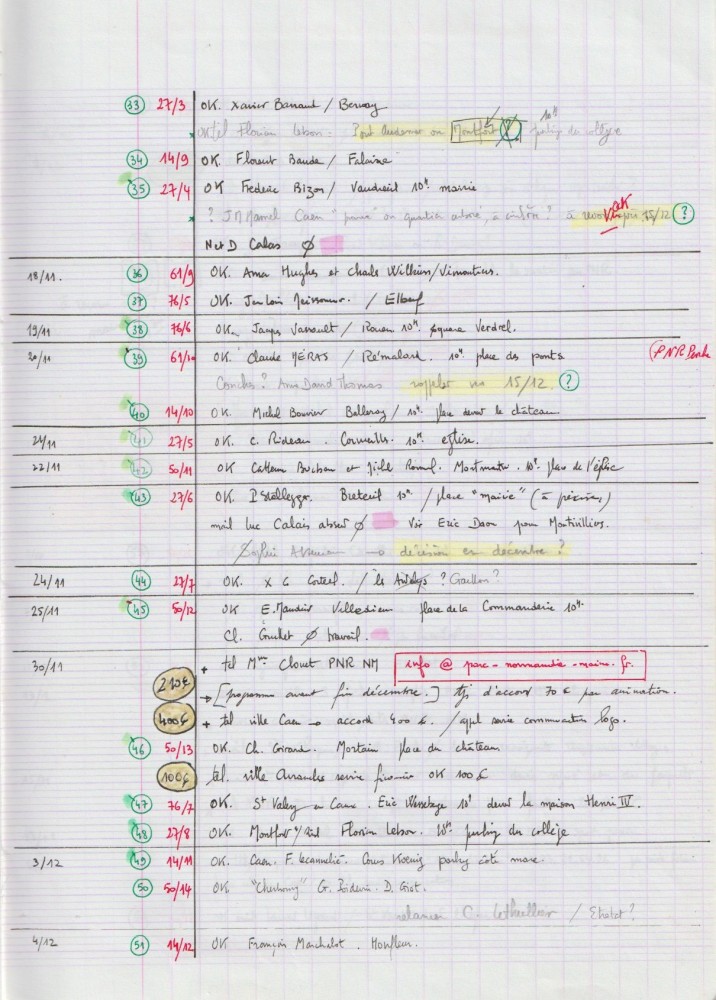 33 27/3 OK. Xavier / Bernay
tel Florian Lebon = Pont Audemer ou Montfort ? 10H parking du collège
34 14/9 OK. Florent Baude / Falaise
35 27/4 OK Frédéric Bizon / Vaudreuil 10H mairie
? JM Hamel Caen " " ou quartier à OK 15/12 ?
N et D Calas Ø
18/11. 36 61/9 OK. Hughes et Charles / Vimoutiers.
37 76/5 OK. Jean Louis / Elbeuf
19/11 38 76/6 OK. Jacques / Rouen 10H. square Verdrel.
20/11 39 61/10 OK. Claude MÉRAS / Rémalard. 10H place des ponts PNR Perche
Conches? David Thomas rappeler 15/12. ?
40 14/10 OK. Michel Bouvier Balleroy / 10H. place devant le château
21/11 41 27/5 OK. C. Rideau. Cormeilles. 10H. église.
22/11 42 50/11 OK et. 10H. place de l'église
43 27/6 OK. Breteuil 10H. / place "mairie" (à préciser)
mail Luc Calais absent Ø Voir Eric Daon pour Montivilliers.
Sophie → décision en décembre ?
24/11 44 27/7 OK. X C / les Andelys ? Gaillon ?
25/11 45 50/12 OK E. Villedieu place de la Commanderie 10H.
Cl. Ø travail.
30/11 + tel Mme Clouet PNR NM info @ parc-normandie-maine.fr.
210€ → [programme avant fin décembre.] d'accord 70 € par animation.
400€ + tel ville Caen → accord 400 €. / appel service communication logo.
46 50/13 OK. Ch. Girard. Mortain place du château
100€ tel. ville Avranches service OK 100 €
47 76/7 OK. St Valery en Caux. Eric 10H devant la maison Henri IV.
48 27/8 OK. Montfort s/ Florian Lebon. 10H. parking du collège
3/12 49 14/11 OK. Caen. F. Cours Koenig parking côté
50 50/14 OK "Cherbourg" G. D. Giot.
relancer C. Lethuillier / Etretat ?
4/12 51 14/12 OK François Marchalot. Honfleur.